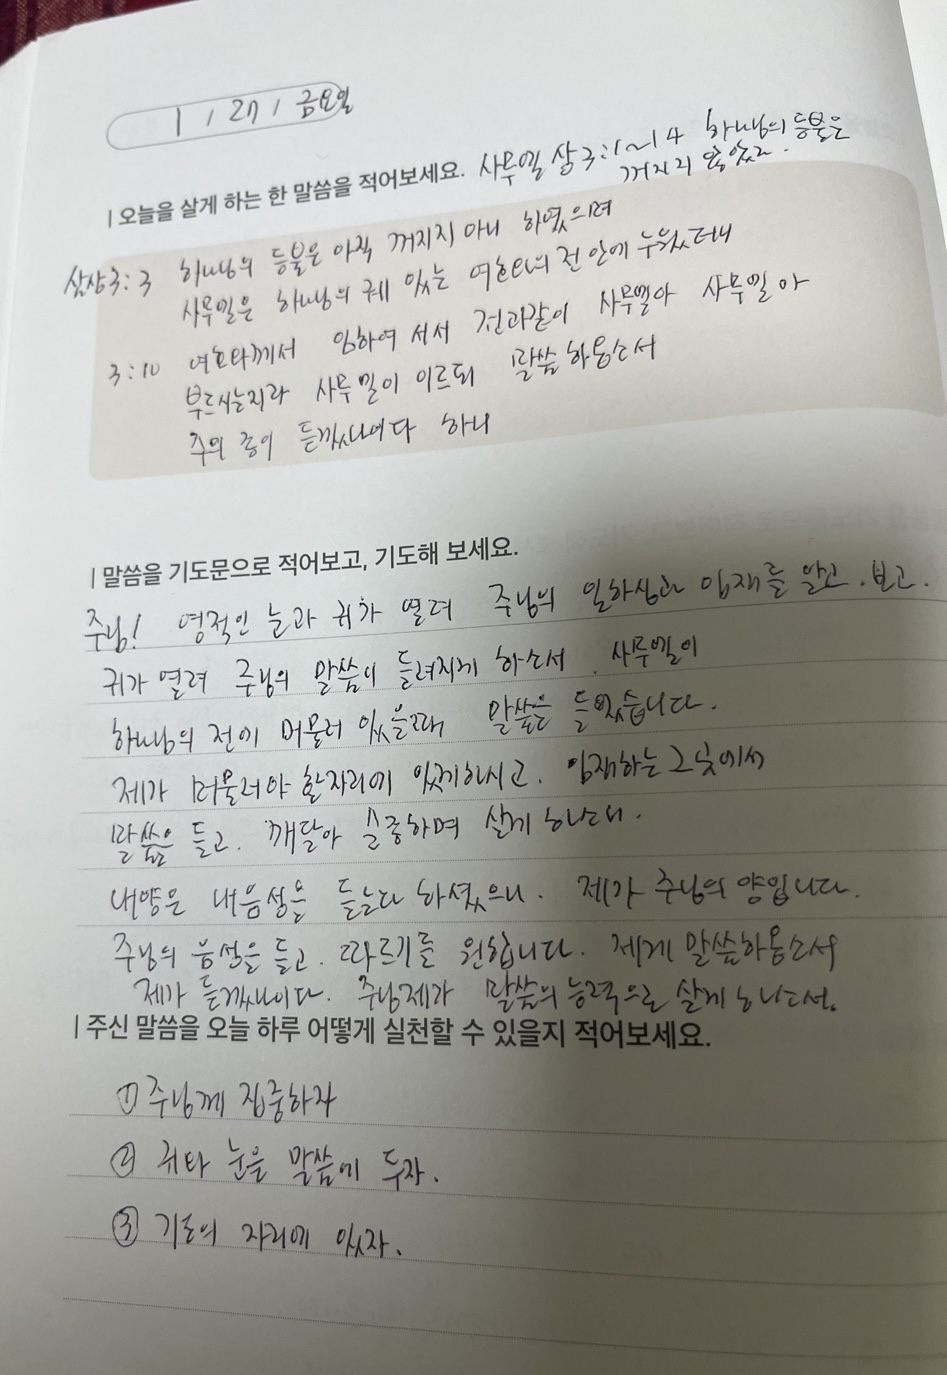 1 / 27 / 금요일
| 오늘을 살게 하는 한 말씀을 적어보세요. 사무엘 상 3:1~14 하나님의 등불은
꺼지지 않았다.
삼상3:3 하나님의 등불은 아직 꺼지지 아니 하였으며
사무엘은 하나님의 궤 있는 여호와의 전 안에 누웠더니
3:10 여호와께서 임하여 서서 전과같이 사무엘아 사무엘아
부르시는지라 사무엘이 이르되 말씀하옵소서
주의 종이 듣겠나이다 하니
| 말씀을 기도문으로 적어보고, 기도해 보세요.
주님! 영적인 눈과 귀가 열려 주님의 일하심과 임재를 알고. 보고.
귀가 열려 주님의 말씀이 들려지게 하소서. 사무엘이
하나님의 전에 머물러 있을때 말씀을 들었습니다.
제가 머물러야 할자리에 있게하시고. 임재하는 그곳에서
말씀을 듣고. 깨달아 순종하며 살게 하소서.
내양은 내음성을 듣는다 하셨으니. 제가 주님의 양입니다.
주님의 음성을 듣고. 따르기를 원합니다. 제게 말씀하옵소서
제가 듣겠나이다. 주님제가 말씀의 능력으로 살게 하소서.
| 주신 말씀을 오늘 하루 어떻게 실천할 수 있을지 적어보세요.
① 주님께 집중하자
② 귀와 눈을 말씀에 두자.
③ 기도의 자리에 있자.